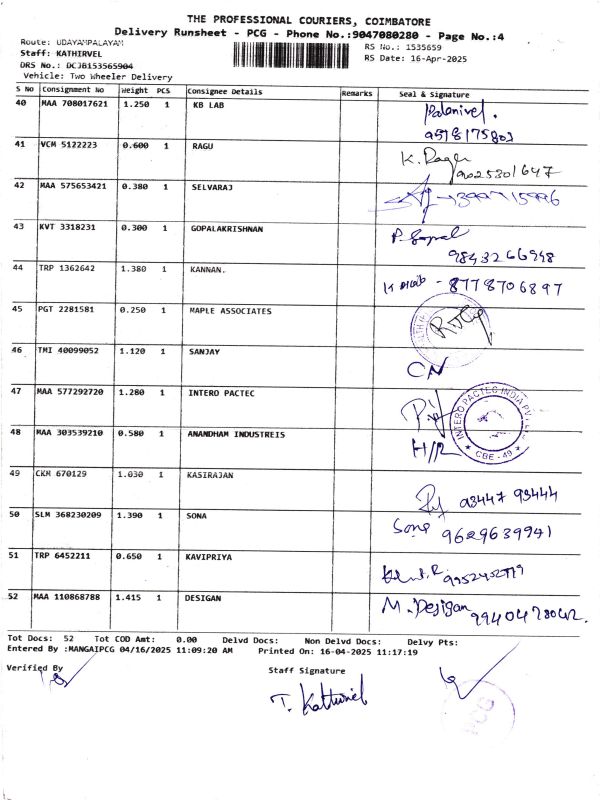 THE PROFESSIONAL COURIERS, COIMBATORE
Delivery Runsheet - PCG - Phone No.:9047080280 - Page No.:4
Route: UDAYAMPALAYAM
RS No.: 1535659
Staff: KATHIRVEL
RS Date: 16-Apr-2025
DRS No.: DCJB153565904
Vehicle: Two Wheeler Delivery
S No Consignment No Weight PCS Consignee Details Remarks Seal & Signature
40 MAA 708017621 1.250 1 KB LAB Palanivel.
9518175803
41 VCM 5122223 0.600 1 RAGU K. Ragu
9025301647
42 MAA 575653421 0.380 1 SELVARAJ
43 KVT 3318231 0.300 1 GOPALAKRISHNAN P. Gopal
9843266948
44 TRP 1362642 1.380 1 KANNAN. - 8778706897
45 PGT 2281581 0.250 1 MAPLE ASSOCIATES
46 TMI 40099052 1.120 1 SANJAY CN
47 MAA 577292720 1.280 1 INTERO PACTEC
INTERO PACTEC INDIA PVT
★ CBE - 49 ★
48 MAA 303539210 0.580 1 ANANDHAM INDUSTREIS H/R
49 CKM 670129 1.030 1 KASIRAJAN 93447 93444
50 SLM 368230209 1.390 1 SONA Sona 9629639941
51 TRP 6452211 0.650 1 KAVIPRIYA
52 MAA 110868788 1.415 1 DESIGAN M. Desigan 9940478042.
Tot Docs: 52 Tot COD Amt: 0.00 Delvd Docs: Non Delvd Docs: Delvy Pts:
Entered By :MANGAIPCG 04/16/2025 11:09:20 AM Printed On: 16-04-2025 11:17:19
Verified By Staff Signature
T. Kathirvel
PCG